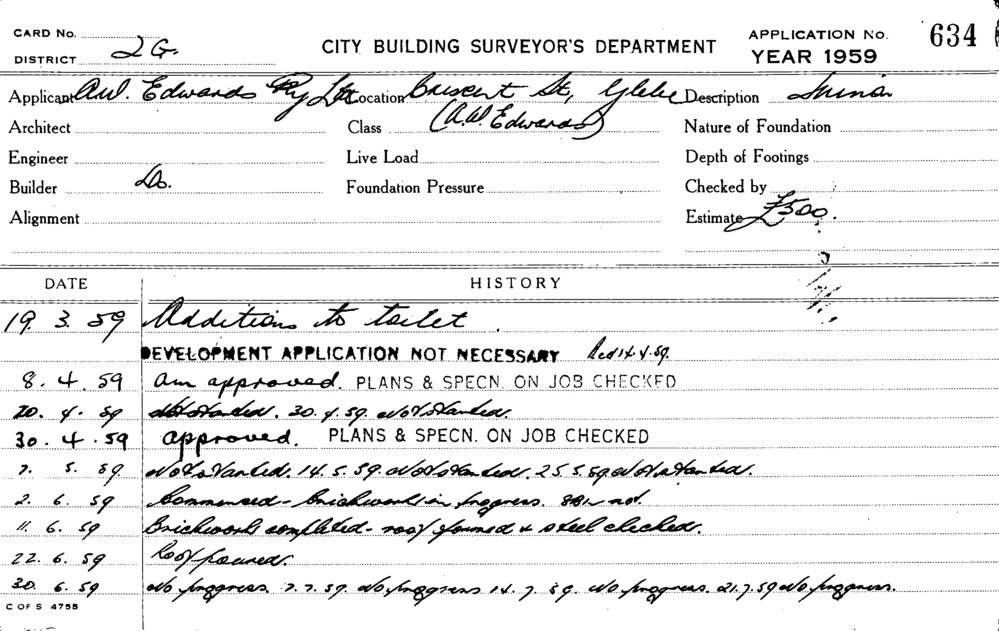 CARD No.
DISTRICT 2G.
CITY BUILDING SURVEYOR'S DEPARTMENT
APPLICATION No. 634
YEAR 1959
Applicant A.W. Edwards Pty Ltd Location Crescent St, Glebe Description Minor
Architect Class (A.W. Edwards) Nature of Foundation
Engineer Live Load Depth of Footings
Builder Do. Foundation Pressure Checked by
Alignment Estimate £500.
DATE HISTORY
19. 3. 59 Additions to toilet.
DEVELOPMENT APPLICATION NOT NECESSARY Red 14.4.59.
8. 4. 59 Am approved. PLANS & SPECN. ON JOB CHECKED
20. 4. 59 Not started. 30.4.59. Not started.
30. 4. 59 approved. PLANS & SPECN. ON JOB CHECKED
7. 5. 59 Not started. 14.5.59. Not started. 25.5.59 Not started.
2. 6. 59 Commenced - brickwork in progress. not
11. 6. 59 Brickwork completed - roof formed & steel checked.
22. 6. 59 Roof poured.
30. 6. 59 No progress. 7.7.59. No progress 14.7.59. No progress. 21.7.59 No progress.
C OF S 4755